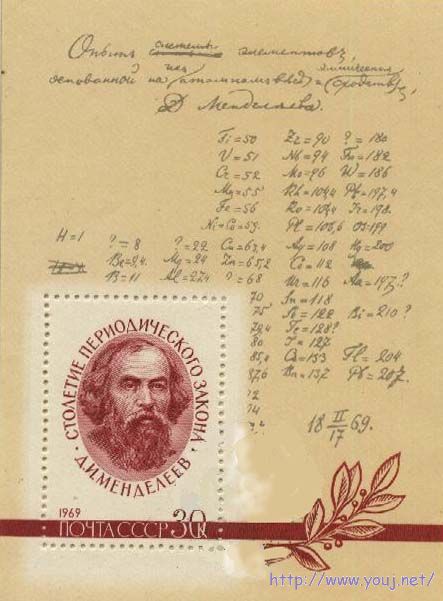 Опытъ системы элементовъ,
основанной на ихъ атомномъ вѣсѣ и химическомъ сходствѣ,
Д. Менделѣева.
Ti=50 Zr=90 ?=180
V=51 Nb=94 Ta=182
Cr=52 Mo=96 W=186
Mn=55 Rh=104,4 Pt=197,4
Fe=56 Ru=104,4 Ir=198.
Ni=Co=59. Pl=106,6 Os=199
H=1 ?=8 ?=22 Cu=63,4 Ag=108 Hg=200
Be=9,4. Mg=24 Zn=65,2 Cd=112
B=11 Al=27,4 ?=68 Ur=116 Au=197?
70 Sn=118
75 Sb=122 Bi=210?
79,4 Te=128?
80 I=127
85,4 Cs=133 Tl=204
87,6 Ba=137 Pb=207.
92
94
18 II/17 69.
СТОЛЕТИЕ ПЕРИОДИЧЕСКОГО ЗАКОНА
Д.И.МЕНДЕЛЕЕВ
1969
ПОЧТА СССР 30к
http://www.youj.net/